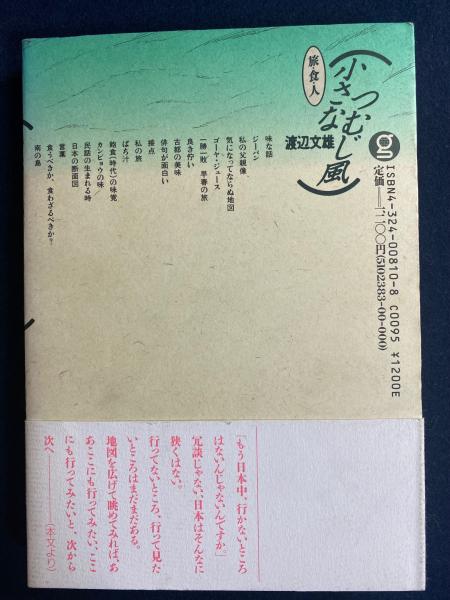 旅・食・人
小さなつむじ風
渡辺文雄
味な話
ジーパン
私の父親像
気になってならぬ地図
ゴーヤ・ジュース
一勝一敗 早春の旅
良き佇い
古都の美味
俳句が面白い
接点
私の旅
ばち汁
飽食(時代)の味覚
カンピョウの味
民話の生まれる時
日本の断面図
言葉
食うべきか、食わざるべきか?
南の島
g
ISBN4-324-00810-8 C0095 ¥1200E
定価══一、二〇〇円(5102383-00-000)
「もう日本中、行かないところ
はないんじゃないんですか」
冗談じゃない、日本はそんなに
狭くはない。
行ってないところ、行って見た
いところはまだまだある。
地図を広げて眺めてみれば、あ
あここにも行ってみたい、ここ
にも行ってみたいと、次から
次へ———(本文より)